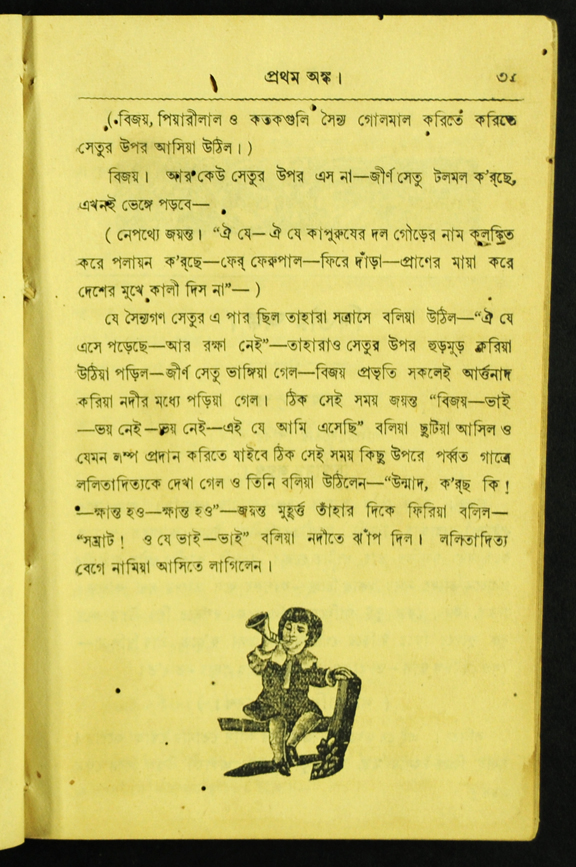 প্রথম অঙ্ক। ৩১
( বিজয়, পিয়ারীলাল ও কতকগুলি সৈন্য গোলমাল করিতে করিতে
সেতুর উপর আসিয়া উঠিল। )
বিজয়। আর কেউ সেতুর উপর এস না—জীর্ণ সেতু টলমল ক'র্‌ছে,
এখনই ভেঙ্গে পড়বে—
( নেপথ্যে জয়ন্ত। “ঐ যে—ঐ যে কাপুরুষের দল গৌড়ের নাম কলঙ্কিত
করে পলায়ন ক'র্‌ছে—ফের্‌ ফেরুপাল—ফিরে দাঁড়া—প্রাণের মায়া করে
দেশের মুখে কালী দিস না”— )
যে সৈন্যগণ সেতুর এ পার ছিল তাহারা সত্রাসে বলিয়া উঠিল—“ঐ যে
এসে পড়েছে—আর রক্ষা নেই”—তাহারাও সেতুর উপর হুড়মুড় করিয়া
উঠিয়া পড়িল—জীর্ণ সেতু ভাঙ্গিয়া গেল—বিজয় প্রভৃতি সকলেই আর্ত্তনাদ
করিয়া নদীর মধ্যে পড়িয়া গেল। ঠিক সেই সময় জয়ন্ত “বিজয়—ভাই
—ভয় নেই—ভয় নেই—এই যে আমি এসেছি” বলিয়া ছুটিয়া আসিল ও
যেমন লম্ফ প্রদান করিতে যাইবে ঠিক সেই সময় কিছু উপরে পর্ব্বত গাত্রে
ললিতাদিত্যকে দেখা গেল ও তিনি বলিয়া উঠিলেন—“উন্মাদ, ক'র্‌ছ কি !
—ক্ষান্ত হও—ক্ষান্ত হও”—জয়ন্ত মুহূর্ত্ত তাঁহার দিকে ফিরিয়া বলিল—
“সম্রাট ! ও যে ভাই—ভাই” বলিয়া নদীতে ঝাঁপ দিল। ললিতাদিত্য
বেগে নামিয়া আসিতে লাগিলেন।